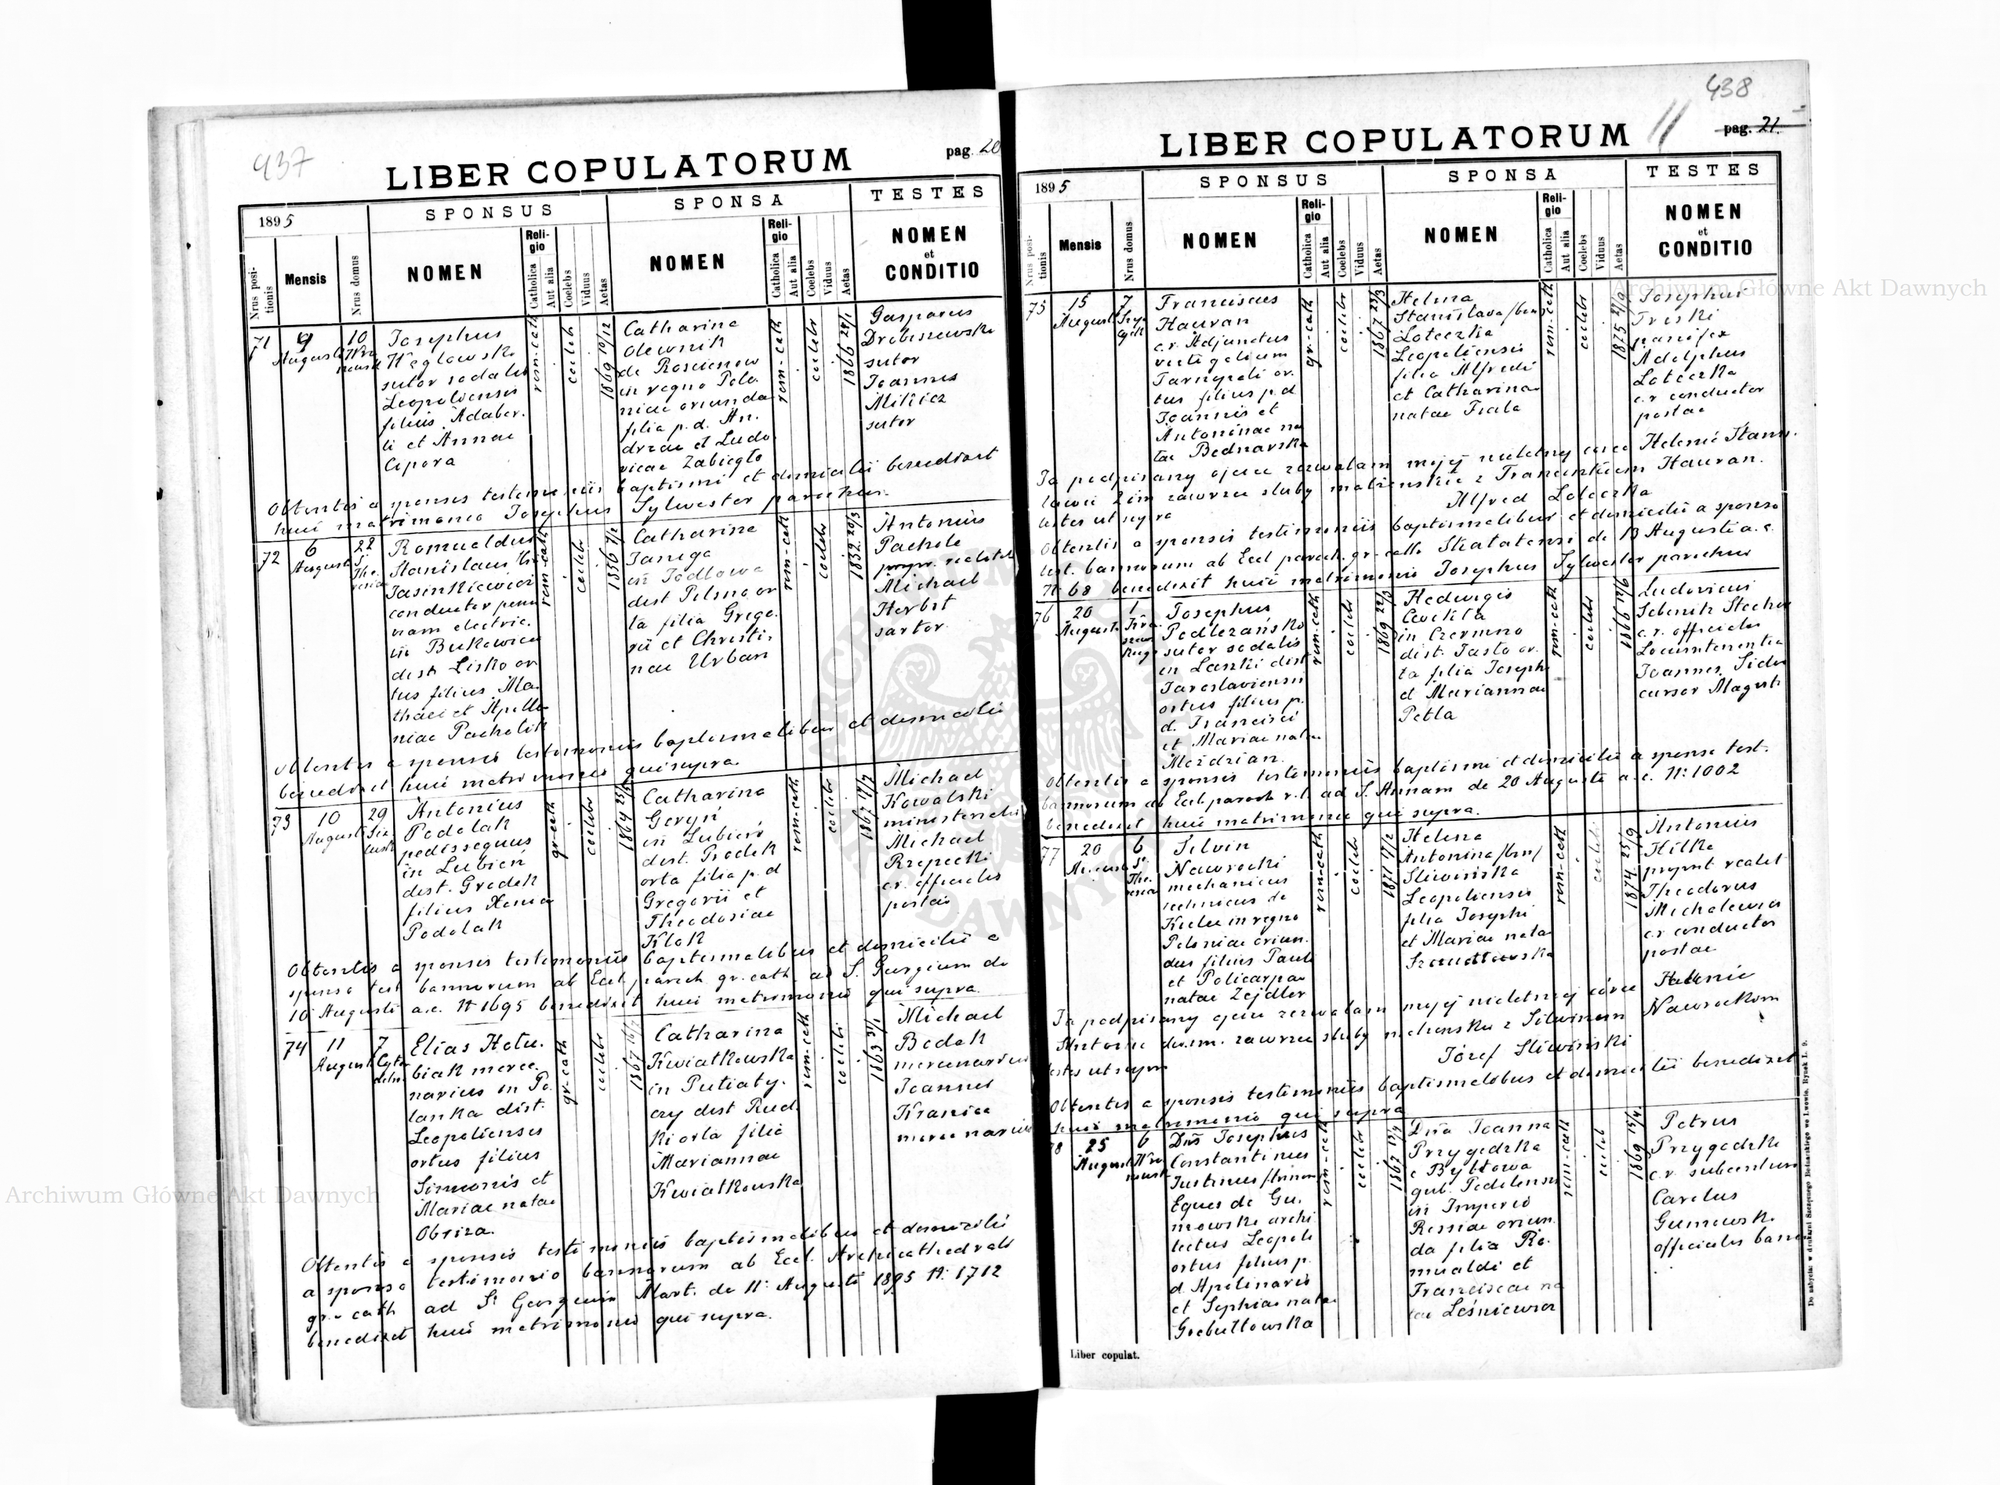 437
LIBER COPULATORUM
pag. 20
1895
SPONSUS
SPONSA
TESTES
Nrus positionis
Mensis
Nrus domus
NOMEN
Religio
Catholica
Aut alia
Coelebs
Viduus
Aetas
NOMEN
Religio
Catholica
Aut alia
Coelebs
Viduus
Aetas
NOMEN
et
CONDITIO
71
9
Augusti
10
Josephus
Węglowski
sutor sodalis
Leopoliensis
filius Adalber.
ti et Annae
Cipora
rom-cath
coelebs
1869 19/12
Catharina
Olewnik
de Roscienow
in regno Polo
niae oriunda
filia p.d. An.
dreae et Ludo
vicae Zabiegło
rom-cath
coelebs
1866 28/1
Gasparus
Drobiszewski
sutor
Joannes
Milicz
sutor
Obtentis a sponsis testimoniis baptismi et domicilii benedixit
huic matrimonio Josephus Sylwester parochus.
72
6
Augusti
22
Romualdus
Stanislaus
Jasinkiewicz
conductor
viarum electric.
in Bukowiec
dist Lisko or
tus filius Ma.
thaei et Apollo
niae Pacholik
rom-cath
coelebs
1856 7/2
Catharina
Janiga
in Jodłowa
dist Pilzno or
ta filia Grego.
rii et Christi,
nae Urban
rom-cath
coelebs
1852 29/3
Antonius
Pachole
Michael
Herbst
sartor
Obtentis a sponsis testimoniis baptismalibus et domicilii
benedixit huic matrimonio qui supra.
73
10
Augusti
29
Antonius
Podolak
pedissequus
in Lubień
dist. Gródek
filius Xenia
Podolak
gr-cath
coelebs
Catharina
Geryń
in Lubień
dist. Grodek
orta filia p.d
Gregorii et
Theodosiae
Klok
rom-cath
coelebs
1867 17/7
Michael
Kowalski
Michael
Rzepecki
c.r. officialis
postais
Obtentis a sponsis testimoniis baptismalibus et domicilii a
sponso test bannorum ab Eccl. paroch gr. cath. ad S. Georgium de
10 Augusti a.c. N 1695 benedixit huic matrimonio qui supra.
74
11
Augusti
7
Elias Hołu.
biak merce.
narius in Po
lanka dist.
Leopoliensis
ortus filius
Simonis et
Mariae natae
Obriza.
gr-cath
coelebs
Catharina
Kwiatkowska
in Putiaty.
cry dist Rud.
ki orta filia
Mariannae
Kwiatkowska
rom-cath
coelebs
1863 31/1
Michael
Bodak
mercenarius
Joannes
Kranica
mercenarius
Obtentis a sponsis testimoniis baptismalibus et domicilii
a sponso testimonio bannorum ab Eccl. Archicathedrali
gr. cath ad St Georgium Mart. de 11 Augusti 1895 N: 1712
benedixit huic matrimonio qui supra.
438
LIBER COPULATORUM
pag. 21.
1895
SPONSUS
SPONSA
TESTES
Nrus positionis
Mensis
Nrus domus
NOMEN
Religio
Catholica
Aut alia
Coelebs
Viduus
Aetas
NOMEN
Religio
Catholica
Aut alia
Coelebs
Viduus
Aetas
NOMEN
et
CONDITIO
75
15
Augusti
7
Franciscus
Hauran
c.r. Adjunctus
vectigalium
Tarnopoli or.
tus filius p.d
Joannis et
Antoninae na
tae Bednarska
gr-cath
coelebs
1867 25/3
Helena
Stanislava /bin/
Loteczka
Leopoliensis
filia Alfredi
et Catharinae
natae Fiala
rom-cath
coelebs
1875 21/9
Josephus
Treski
panifex
Adolphus
Loteczka
c.r conductor
postae
Ja podpisany ojciec zezwalam mojej nieletniej córce Helenie Stanis.
ławie 2 im zawrzeć śluby małżeńskie z Franciszkiem Hauran.
testes ut supra
Alfred Loteczka
Obtentis a sponsis testimoniis baptismalibus et domicilii a sponso
test. bannorum ab Eccl paroch. gr. cath. de 13 Augusti a.c.
N 68 benedixit huic matrimonio Josephus Sylwester parochus
76
20
Augusti
1
Josephus
Podlezański
sutor sodalis
in Laszki dist
Jaroslaviensi
ortus filius p.
d. Francisci
et Mariae natae
Moździan.
rom-cath
coelebs
Hedwigis
Cwikła
in Czermno
dist. Jasło or.
ta filia Josephi
et Mariannae
Petla
rom-cath
coelebs
Ludovicus
c.r. officialis
Locumtenentiae
Joannes
cursor Magistr
Obtentis a sponsis testimoniis baptismi et domicilii a sponso test.
bannorum ab Eccl. paroch r.l. ad S. Annam de 20 Augusti a.c. N: 1002
benedixit huic matrimonio qui supra.
77
20
Augusti
6
Silvin
Nawrocki
mechanicus
technicus de
Kielce in regno
Poloniae oriun.
dus filius Pauli
et Policarpae
natae Zejdler
rom-cath
coelebs
1871 17/2
Helena
Antonina /bin/
Sliwińska
Leopoliensis
filia Josephi
et Mariae nata
rom-cath
coelebs
1874 25/9
Antonius
Hilka
propriet. realit.
Theodorus
Michalewicz
c.r conductor
postae
Ja podpisany ojciec zezwalam mojej nieletniej córce Helenie
Antonie dw.im. zawrzeć śluby małżeńskie z Silwinem Nawrockim
testes ut supra
Józef Sliwiński
Obtentis a sponsis testimoniis baptismalibus et domicilii benedixit
huic matrimonio qui supra
78
25
Augusti
6
Dns Josephus
Constantinus
Justinus /trinom/
Eques de Gu.
mowski archi
tectus Leopoli
ortus filius p.
d. Apolinaris
et Sophiae natae
Grebułtowska
rom-cath
coelebs
Dna Joanna
Przygodzka
e Bytkowa
gub. Podolensi
in Imperio
Rossiae oriun.
da filia Ro.
mualdi et
Franciscae na
tae Leśniewicz
rom-cath
coelebs
1869 15/4
Petrus
Przygodzki
Carolus
Gumowski
officialis banci
Liber copulat.
Archiwum Główne Akt Dawnych
Archiwum Główne Akt Dawnych